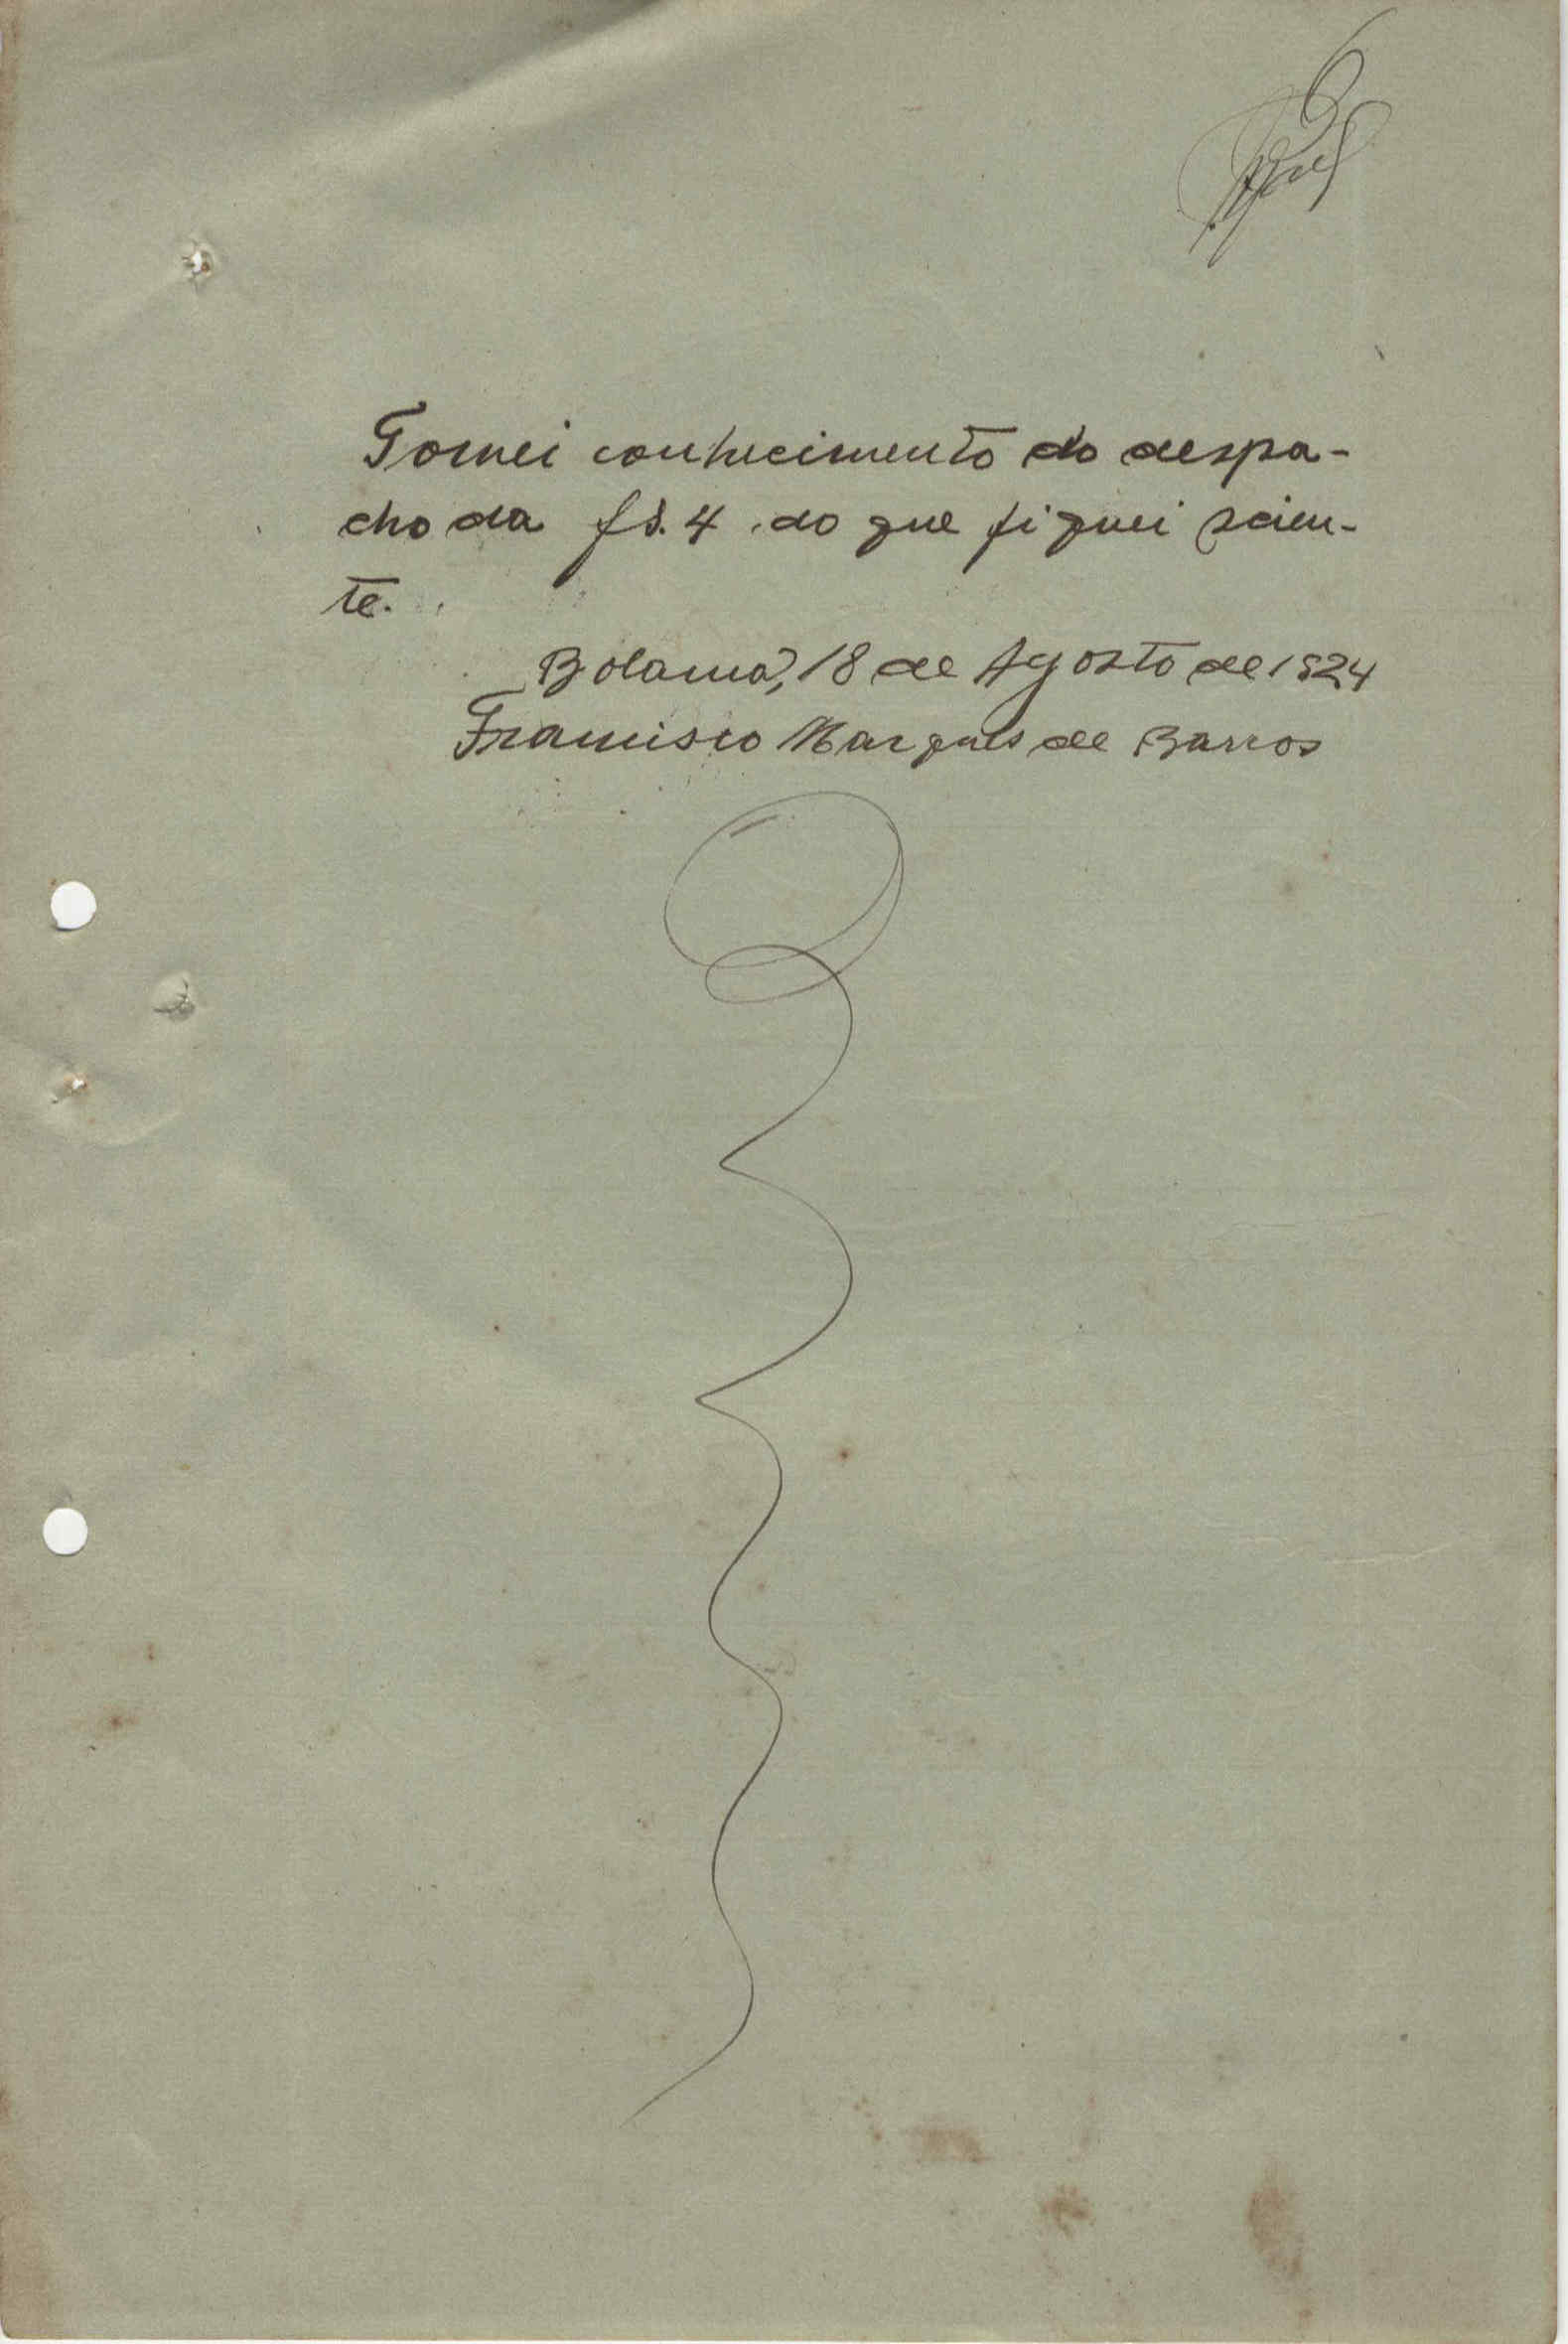 6
Tomei conhecimento do despa-
cho da fs. 4 do que fiquei scien-
te.
Bolama, 18 de Agosto de 1924
Francisco Marques de Barros